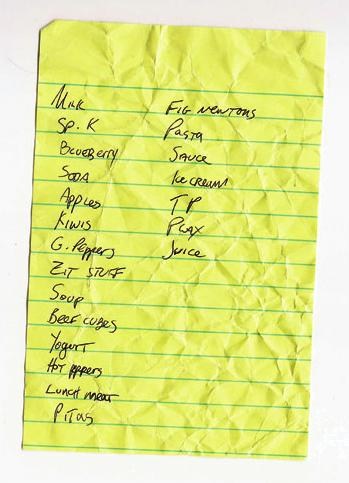 Milk
Sp. K
Blueberry
Soda
Apples
Kiwis
G. Peppers
Zit Stuff
Soup
Beef cubes
Yogurt
Hot peppers
Lunch meat
Pitas
Fig Newtons
Pasta
Sauce
Ice cream
TP
Plax
Juice